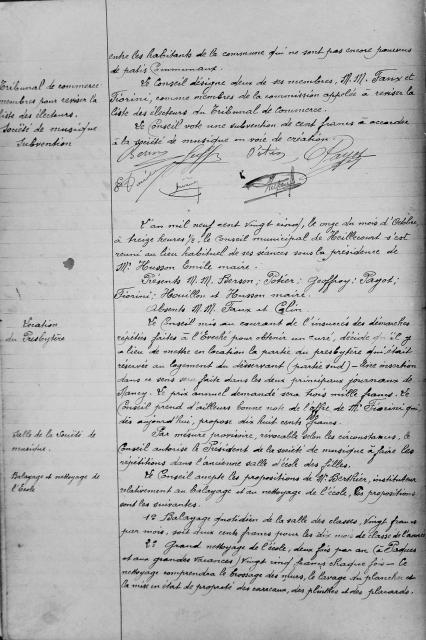 entre les habitants de la commune qui ne sont pas encore pourvus
de patis Communaux.
Tribunal de commerce
membres pour reviser la
liste des électeurs.
Le Conseil désigne deux de ses membres, M.M. Faux et
Fiorini, comme membres de la commission appelée à reviser la
liste des électeurs du Tribunal de Commerce.
Société de musique
Subvention
Le Conseil vote une subvention de cent francs à accorder
à la société de musique en voie de création.
L'an mil neuf cent vingt cinq, le onze du mois d'Octobre,
à treize heures 1/2, le Conseil municipal de Heillecourt s'est
réuni au lieu habituel de ses séances sous la présidence de
Mr Husson Emile maire.
Présents M.M. Berson; Potier; Geoffroy; Pagot;
Fiorini; Houillon et Husson maire.
Absents M.M. Faux et Colin.
Location
du Presbytère
Le Conseil mis au courant de l'insuccès des démarches
répétées faites à l'Evêché pour obtenir un curé, décide qu'il y
a lieu de mettre en location la partie du presbytère qui était
réservée au logement du desservant (partie sud) — Une insertion
dans ce sens sera faite dans les deux principaux journaux de
Nancy. Le prix annuel demandé sera trois mille francs. Le
Conseil prend d'ailleurs bonne note de l'offre de Mr Fiorini qui
dès aujourd'hui, propose dix huit cents francs.
Salle de la Société de
musique.
Par mesure provisoire, revocable selon les circonstances, le
Conseil autorise le Président de la société de musique à faire les
répétitions dans l'ancienne salle d'école des filles.
Balayage et nettoyage de
l'Ecole
Le Conseil accepte les propositions de Mr Berthier, instituteur
relativement au balayage et au nettoyage de l'école, les propositions
sont les suivantes.
1º Balayage quotidien de la salle des classes, vingt francs
par mois, soit deux cents francs pour les dix mois de classe de l'année
2º Grand nettoyage de l'école, deux fois par an (à Pâques
et aux grandes vacances) Vingt cinq francs chaque fois — le
nettoyage comprendra le brossage des murs, le lavage du plancher et
la mise en état de propreté des carreaux, des plinthes et des placards.